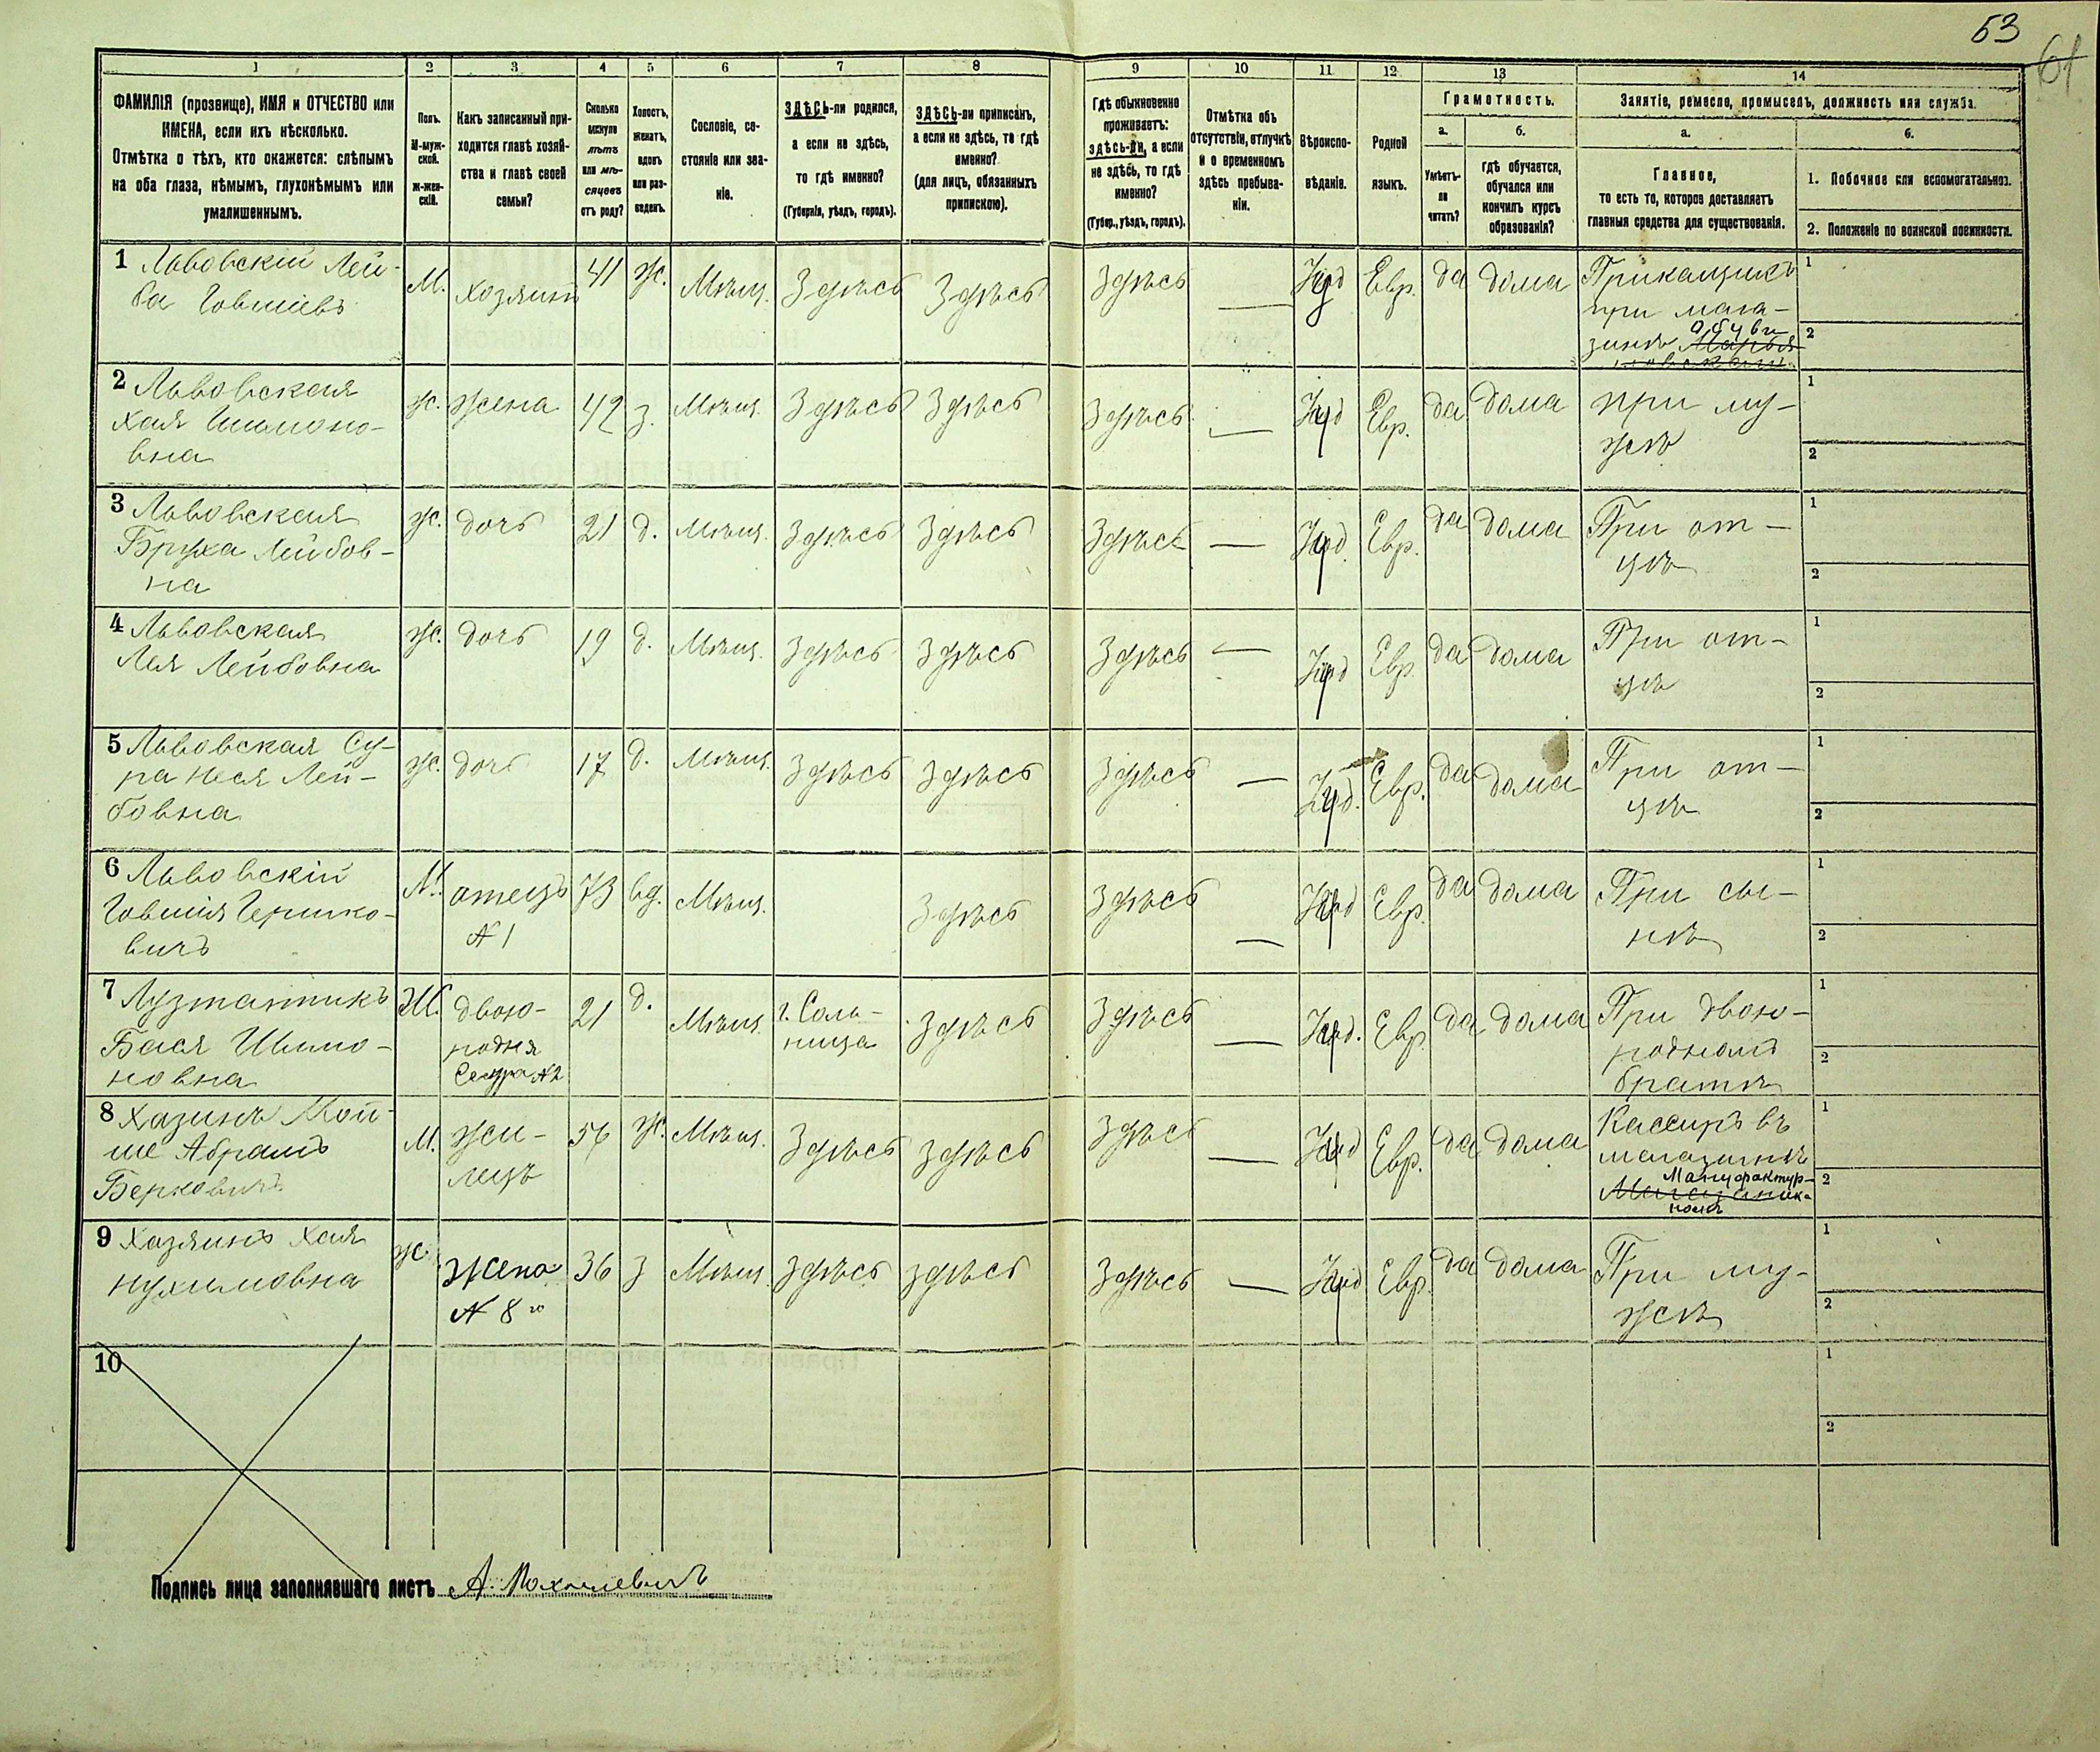 53
61
1 2 3 4 5 6 7 8 9 10 11 12 13 14
ФАМИЛІЯ (прозвище), ИМЯ и ОТЧЕСТВО или
ИМЕНА, если ихъ нѣсколько.
Отмѣтка о тѣхъ, кто окажется: слѣпымъ
на оба глаза, нѣмымъ, глухонѣмымъ или
умалишеннымъ.
Полъ.
М-муж-
ской.
Ж-жен-
скій.
Какъ записанный при-
ходится главѣ хозяй-
ства и главѣ своей
семьи?
Сколько
минуло
лѣтъ
или мѣ-
сяцевъ
отъ роду?
Холостъ,
женатъ,
вдовъ
или раз-
веденъ.
Сословіе, со-
стояніе или зва-
ніе.
ЗДѢСЬ-ли родился,
а если не здѣсь,
то гдѣ именно?
(Губернія, уѣздъ, городъ).
ЗДѢСЬ-ли приписанъ,
а если не здѣсь, то гдѣ
именно?
(для лицъ, обязанныхъ
припискою).
Гдѣ обыкновенно
проживаетъ:
здѣсь-ли, а если
не здѣсь, то гдѣ
именно?
(Губер., уѣздъ, городъ).
Отмѣтка объ
отсутствіи, отлучкѣ
и о временномъ
здѣсь пребыва-
ніи.
Вѣроиспо-
вѣданіе.
Родной
языкъ.
Грамотность.
а.
Умѣетъ-
ли
читать?
б.
гдѣ обучается,
обучался или
кончилъ курсъ
образованія?
Занятіе, ремесло, промыселъ, должность или служба.
а.
Главное,
то есть то, которое доставляетъ
главныя средства для существованія.
б.
1. Побочное или вспомогательное.
2. Положеніе по воинской повинности.
1 Львовскій Лей-
ба Говшіевъ
М.
хозяинъ
41
Ж.
Мѣщ.
Здѣсь
Здѣсь
Здѣсь
—
Іуд
Евр.
да
дома
Прикащикъ
при мага-
зинѣ обуви
1
2
2 Львовская
Хая Шимоно-
вна
Ж.
жена
42
з.
Мѣщ.
Здѣсь
Здѣсь
Здѣсь
—
Іуд
Евр.
да
дома
при му-
жѣ
1
2
3 Львовская
Бруха Лейбов-
на
Ж.
дочь
21
д.
Мѣщ.
Здѣсь
Здѣсь
Здѣсь
—
Іуд.
Евр.
да
дома
При от-
цѣ
1
2
4 Львовская
Лея Лейбовна
Ж.
дочь
19
д.
Мѣщ.
Здѣсь
Здѣсь
Здѣсь
—
Іуд
Евр.
да
дома
При от-
цѣ
1
2
5 Львовская Су-
ра Неся Лей-
бовна
Ж.
дочь
17
д.
Мѣщ.
Здѣсь
Здѣсь
Здѣсь
—
Іуд.
Евр.
да
дома
При от-
цѣ
1
2
6 Львовскій
Говшія Гершко-
вичъ
М.
отецъ
№ 1
73
вд.
Мѣщ.
Здѣсь
Здѣсь
—
Іуд
Евр.
да
дома
При сы-
нѣ
1
2
7 Лузтантикъ
Бася Шимо-
новна
Ж.
двою-
родная
Сестра № 2
21
д.
Мѣщ.
г. Соль-
ница
Здѣсь
Здѣсь
—
Іуд.
Евр
да
дома
При двою-
родномъ
братѣ
1
2
8 Хазинъ Мой-
ше Абрамъ
Берковичъ
М.
жи-
лецъ
56
Ж.
Мѣщ.
Здѣсь
Здѣсь
Здѣсь
—
Іуд
Евр.
да
дома
Кассиръ въ
магазинѣ
Мануфактур-
номъ
1
2
9 Хазинъ Хая
Нухимовна
Ж.
жена
№ 8го
36
з
Мѣщ.
Здѣсь
здѣсь
Здѣсь
—
Іуд
Евр.
да
дома
При му-
жѣ
1
2
10
1
2
Подпись лица заполнявшаго листъ А.